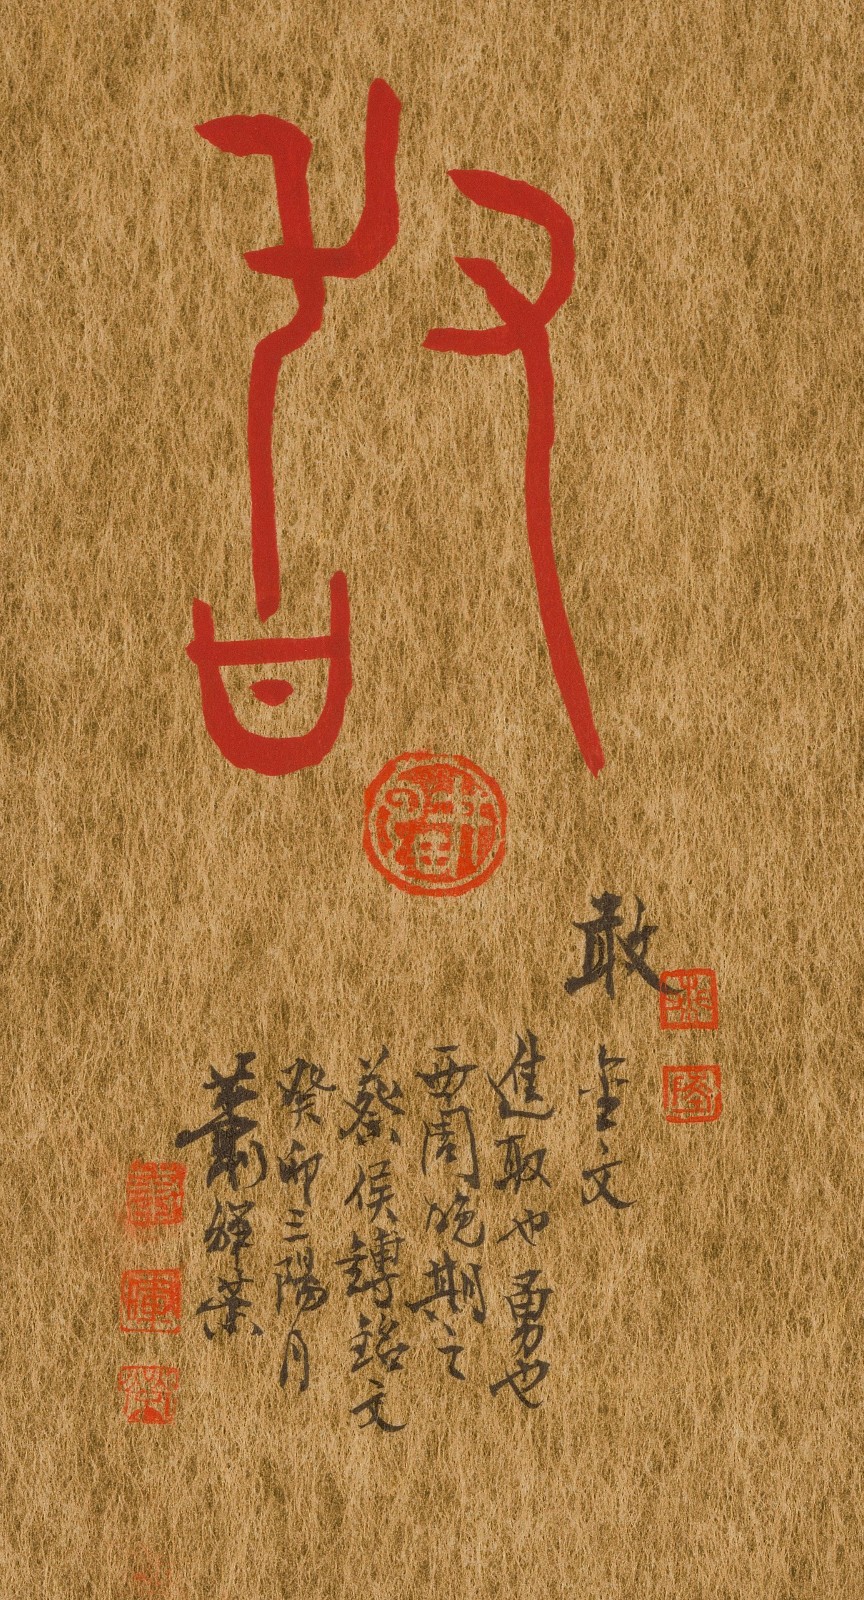 敢
敢
金文
進取也勇也
西周晚期之
蔡侯鎛銘文
癸卯三陽月
蕭輝榮